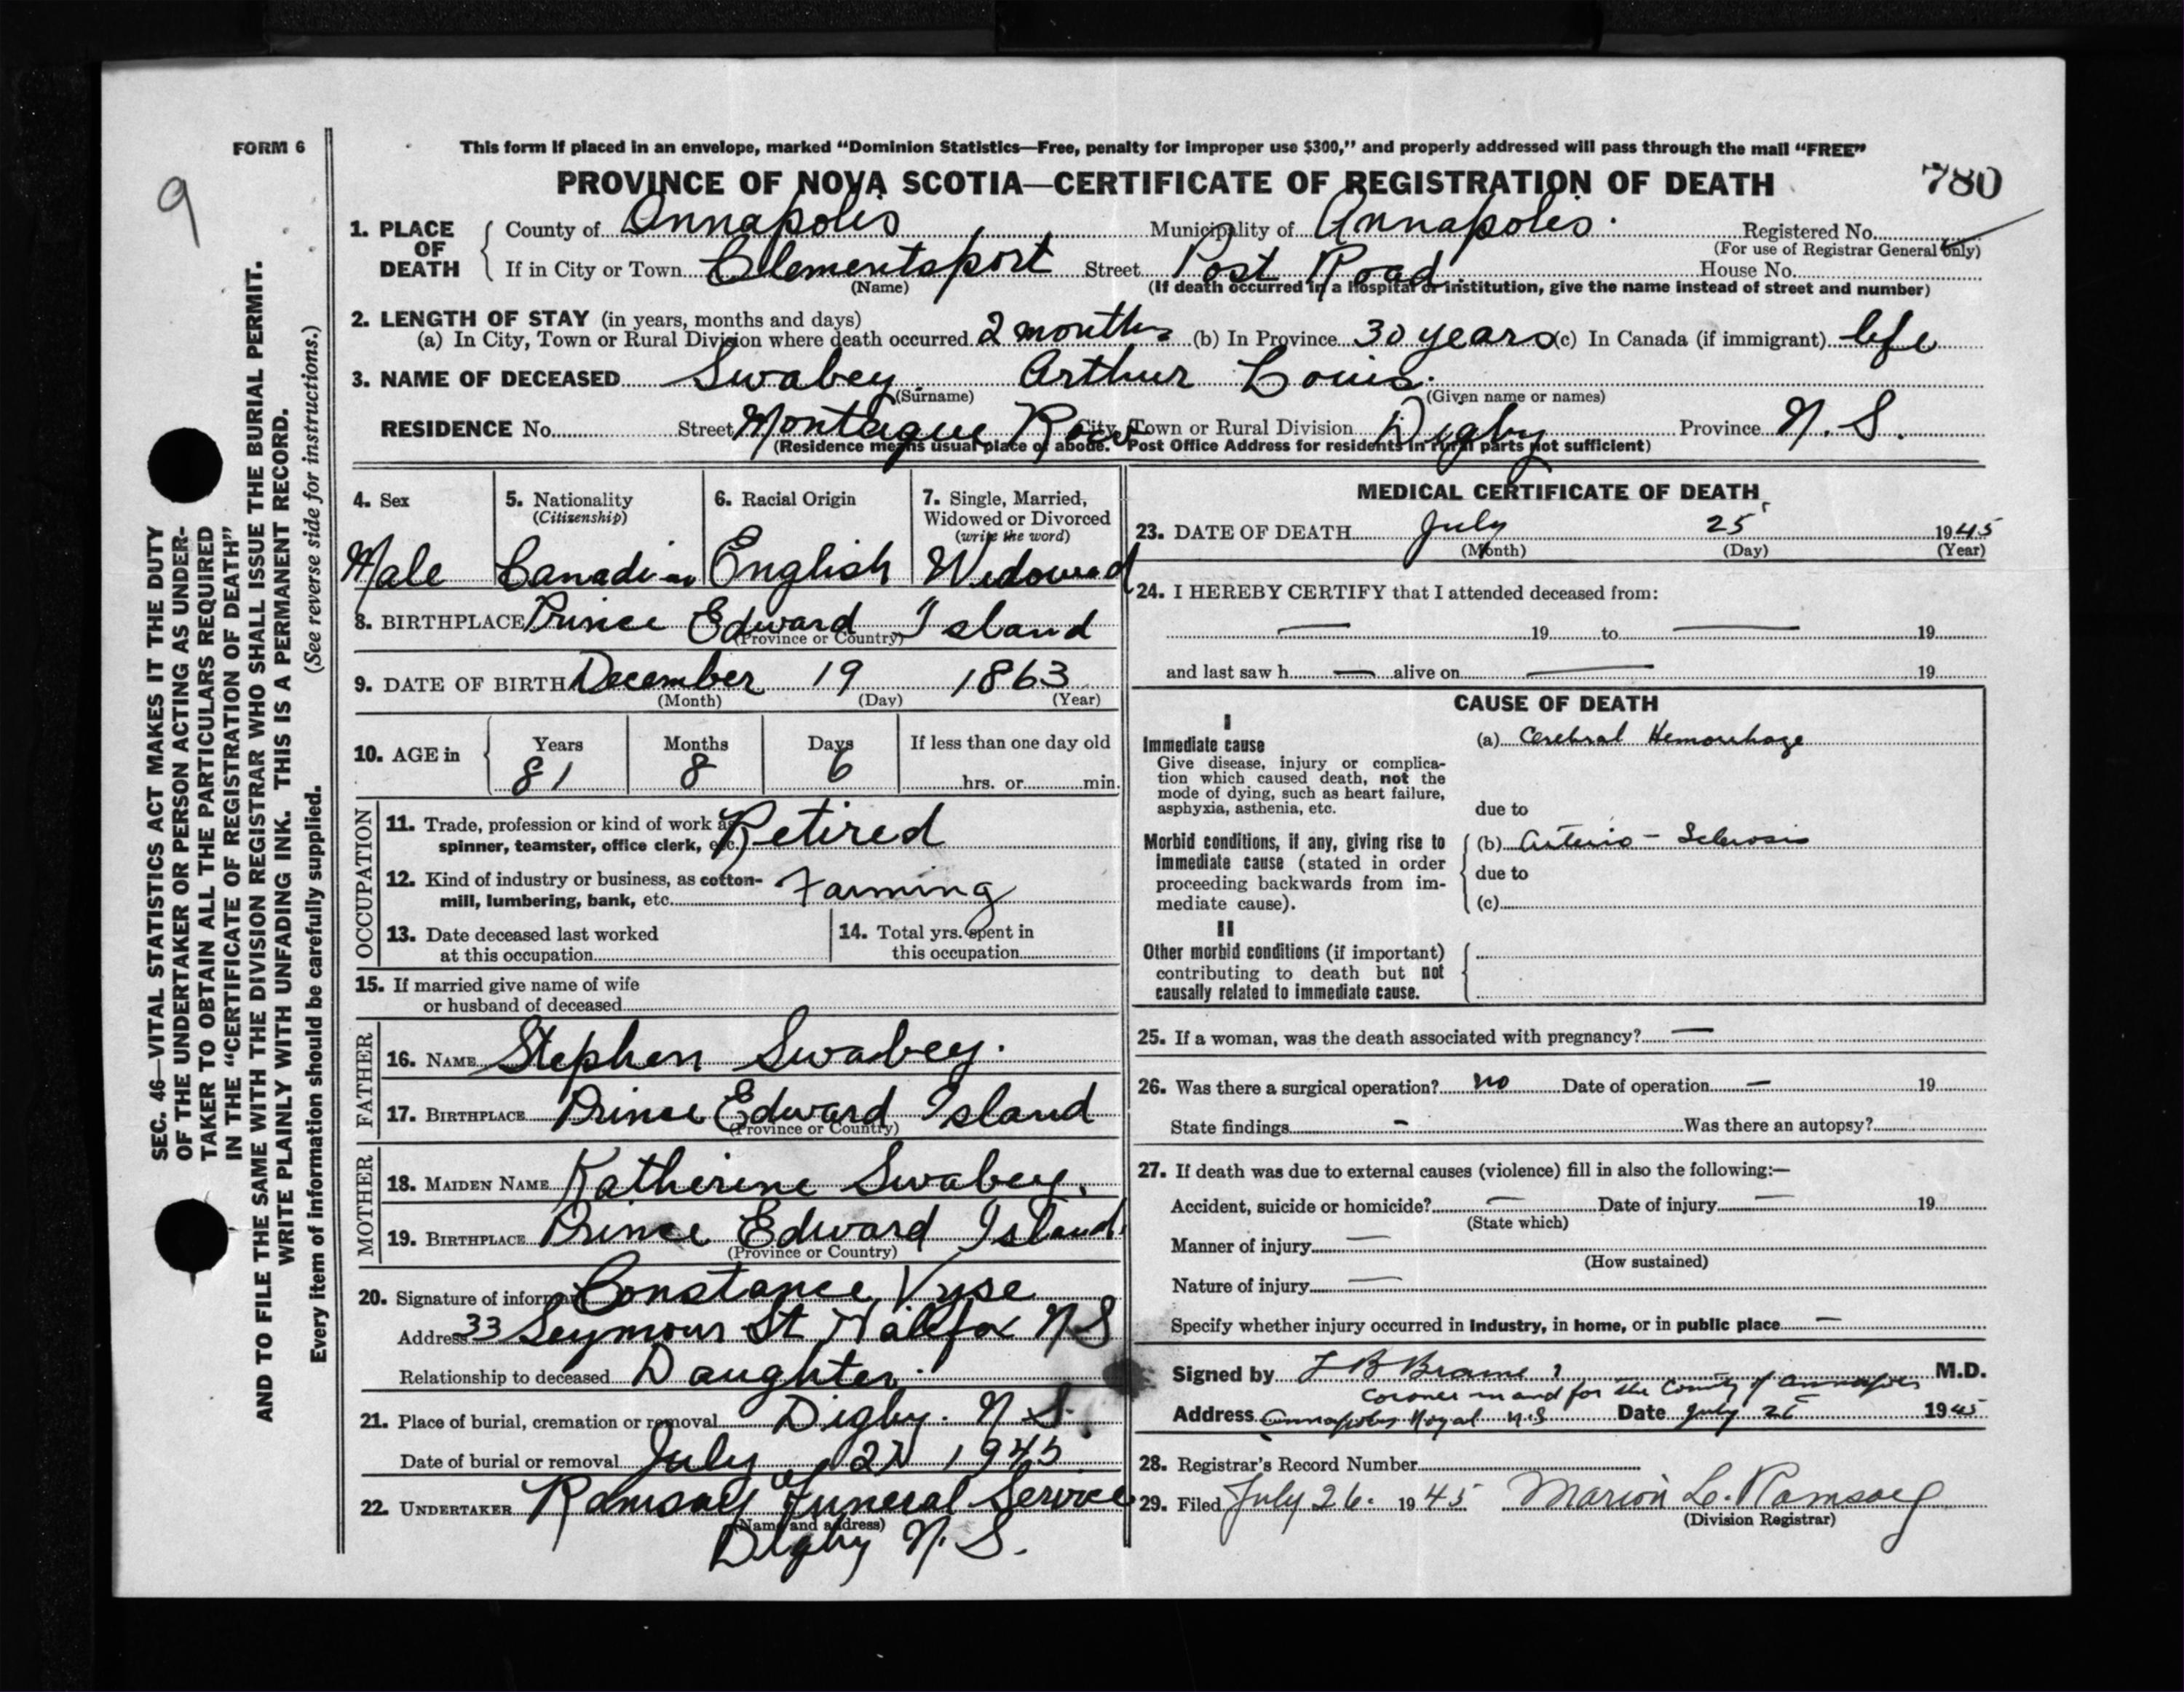 FORM 6
9
This form if placed in an envelope, marked “Dominion Statistics—Free, penalty for improper use $300,” and properly addressed will pass through the mail “FREE”
PROVINCE OF NOVA SCOTIA—CERTIFICATE OF REGISTRATION OF DEATH
780
1. PLACE OF DEATH
County of Annapolis Municipality of Annapolis. Registered No.
(For use of Registrar General only)
If in City or Town Clementsport Street Post Road. House No.
(Name) (If death occurred in a hospital or institution, give the name instead of street and number)
2. LENGTH OF STAY (in years, months and days)
(a) In City, Town or Rural Division where death occurred 2 months (b) In Province 30 years (c) In Canada (if immigrant) life
3. NAME OF DECEASED Swabey. Arthur Louis.
(Surname) (Given name or names)
RESIDENCE No. Street Montague Row City, Town or Rural Division Digby Province N. S.
(Residence means usual place of abode. Post Office Address for residents in rural parts not sufficient)
4. Sex
Male
5. Nationality
(Citizenship)
Canadian
6. Racial Origin
English
7. Single, Married,
Widowed or Divorced
(write the word)
Widowed
8. BIRTHPLACE Prince Edward Island
(Province or Country)
9. DATE OF BIRTH December 19 1863
(Month) (Day) (Year)
10. AGE in
Years Months Days If less than one day old
81 8 6 hrs. or min.
OCCUPATION
11. Trade, profession or kind of work as
spinner, teamster, office clerk, etc. Retired
12. Kind of industry or business, as cotton-
mill, lumbering, bank, etc. Farming
13. Date deceased last worked
at this occupation
14. Total yrs. spent in
this occupation
15. If married give name of wife
or husband of deceased
FATHER
16. NAME Stephen Swabey.
17. BIRTHPLACE Prince Edward Island
(Province or Country)
MOTHER
18. MAIDEN NAME Katherine Swabey.
19. BIRTHPLACE Prince Edward Island.
(Province or Country)
20. Signature of informant Constance Vyse
Address 33 Seymour St Halifax N S
Relationship to deceased Daughter.
21. Place of burial, cremation or removal Digby. N S.
Date of burial or removal July 1945
22. UNDERTAKER Ramsay Funeral Service
(Name and address)
Digby N. S.
MEDICAL CERTIFICATE OF DEATH
23. DATE OF DEATH July 25 1945
(Month) (Day) (Year)
24. I HEREBY CERTIFY that I attended deceased from:
— 19 to — 19
and last saw h — alive on — 19
CAUSE OF DEATH
I
Immediate cause
Give disease, injury or complica-
tion which caused death, not the
mode of dying, such as heart failure,
asphyxia, asthenia, etc.
(a) Cerebral Hemorrhage
due to
Morbid conditions, if any, giving rise to
immediate cause (stated in order
proceeding backwards from im-
mediate cause).
(b) Arterio - Sclerosis
due to
(c)
II
Other morbid conditions (if important)
contributing to death but not
causally related to immediate cause.
25. If a woman, was the death associated with pregnancy? —
26. Was there a surgical operation? no Date of operation — 19
State findings - Was there an autopsy?
27. If death was due to external causes (violence) fill in also the following:—
Accident, suicide or homicide? — Date of injury — 19
(State which)
Manner of injury —
(How sustained)
Nature of injury —
Specify whether injury occurred in industry, in home, or in public place —
Signed by M.D.
Coroner in and for the County of Annapolis
Address Annapolis Royal N.S Date July 1945
28. Registrar's Record Number
29. Filed July 26. 1945 Marion L. Ramsay
(Division Registrar)
SEC. 46—VITAL STATISTICS ACT MAKES IT THE DUTY
OF THE UNDERTAKER OR PERSON ACTING AS UNDER-
TAKER TO OBTAIN ALL THE PARTICULARS REQUIRED
IN THE “CERTIFICATE OF REGISTRATION OF DEATH”
AND TO FILE THE SAME WITH THE DIVISION REGISTRAR WHO SHALL ISSUE THE BURIAL PERMIT.
WRITE PLAINLY WITH UNFADING INK. THIS IS A PERMANENT RECORD.
(See reverse side for instructions.)
Every item of information should be carefully supplied.